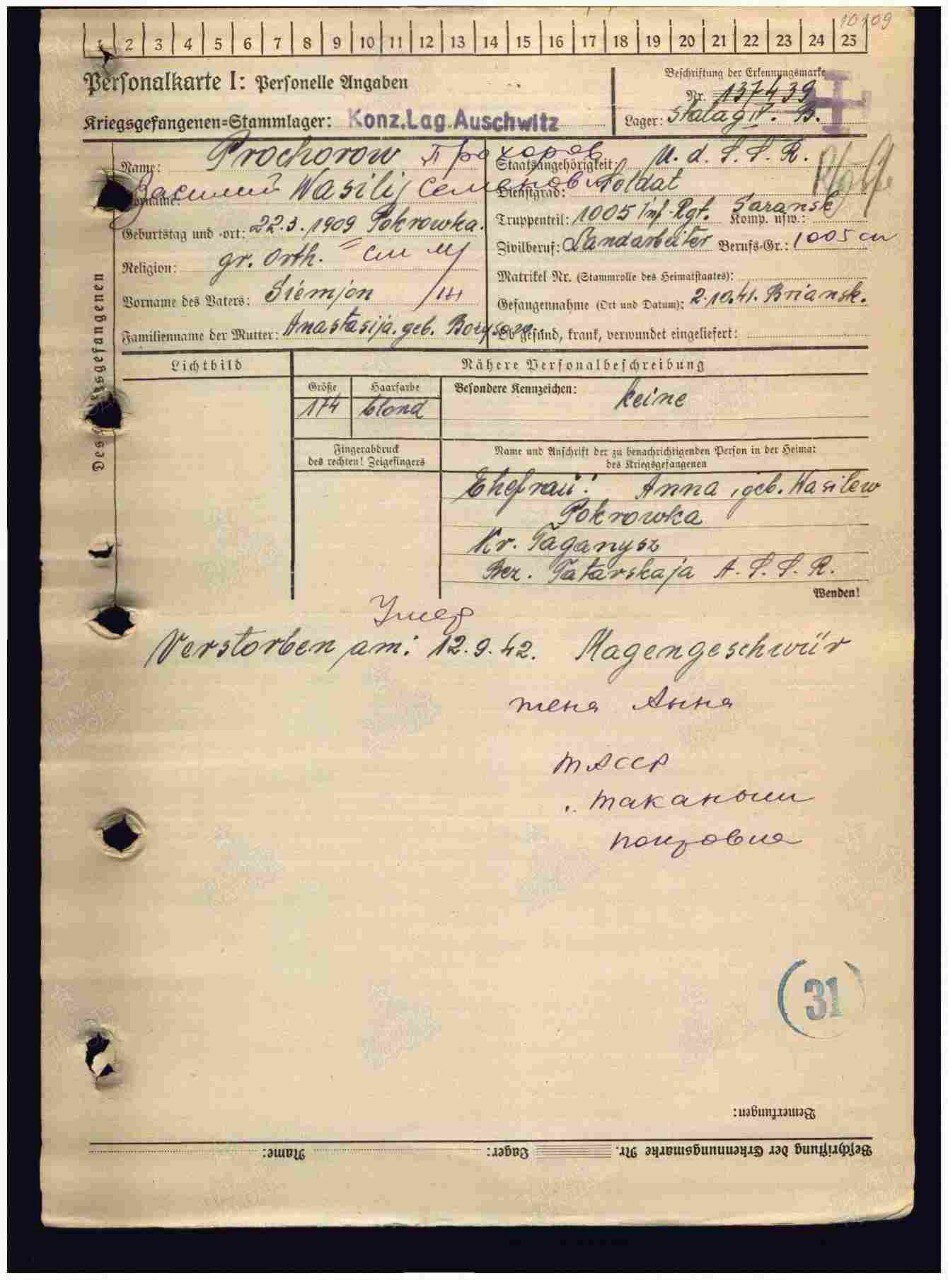 10109
1 2 3 4 5 6 7 8 9 10 11 12 13 14 15 16 17 18 19 20 21 22 23 24 25
Personalkarte I: Personelle Angaben
Beschriftung der Erkennungsmarke
Nr. 137439
Kriegsgefangenen=Stammlager: Konz.Lag.Auschwitz
Lager: Stalag IV. B.
Des Kriegsgefangenen
Name: Prochorow Прохоров
Vorname: Василий Wasilij Семенович
Geburtstag und -ort: 22.3.1909 Pokrowka.
Religion: gr. Orth.
Vorname des Vaters: Siemjon
Familienname der Mutter: Anastasija. geb.
Staatsangehörigkeit: U. d. S. S. R.
Dienstgrad: Soldat
Truppenteil: 1005 Inf-Rgt. Saransk Komp. usw.:
Zivilberuf: Landarbeiter Berufs-Gr.: 1005 сп
Matrikel Nr. (Stammrolle des Heimatstaates):
Gefangennahme (Ort und Datum): 2.10.41. Briansk.
Ob gesund, krank, verwundet eingeliefert:
Lichtbild
Nähere Personalbeschreibung
Größe Haarfarbe Besondere Kennzeichen: keine
174 blond
Fingerabdruck
des rechten! Zeigefingers
Name und Anschrift der zu benachrichtigenden Person in der Heimat
des Kriegsgefangenen
Ehefrau: Anna, geb. Wasilew
Pokrowka
Kr. Taganysz
Bez. Tatarskaja A. S. S. R.
Wenden!
Умер
Verstorben am: 12.9.42. Magengeschwür
жена Анна
ТАССР
Таканыш
Покровка
31
Bemerkungen:
Beschriftung der Erkennungsmarke Nr. Lager: Name: